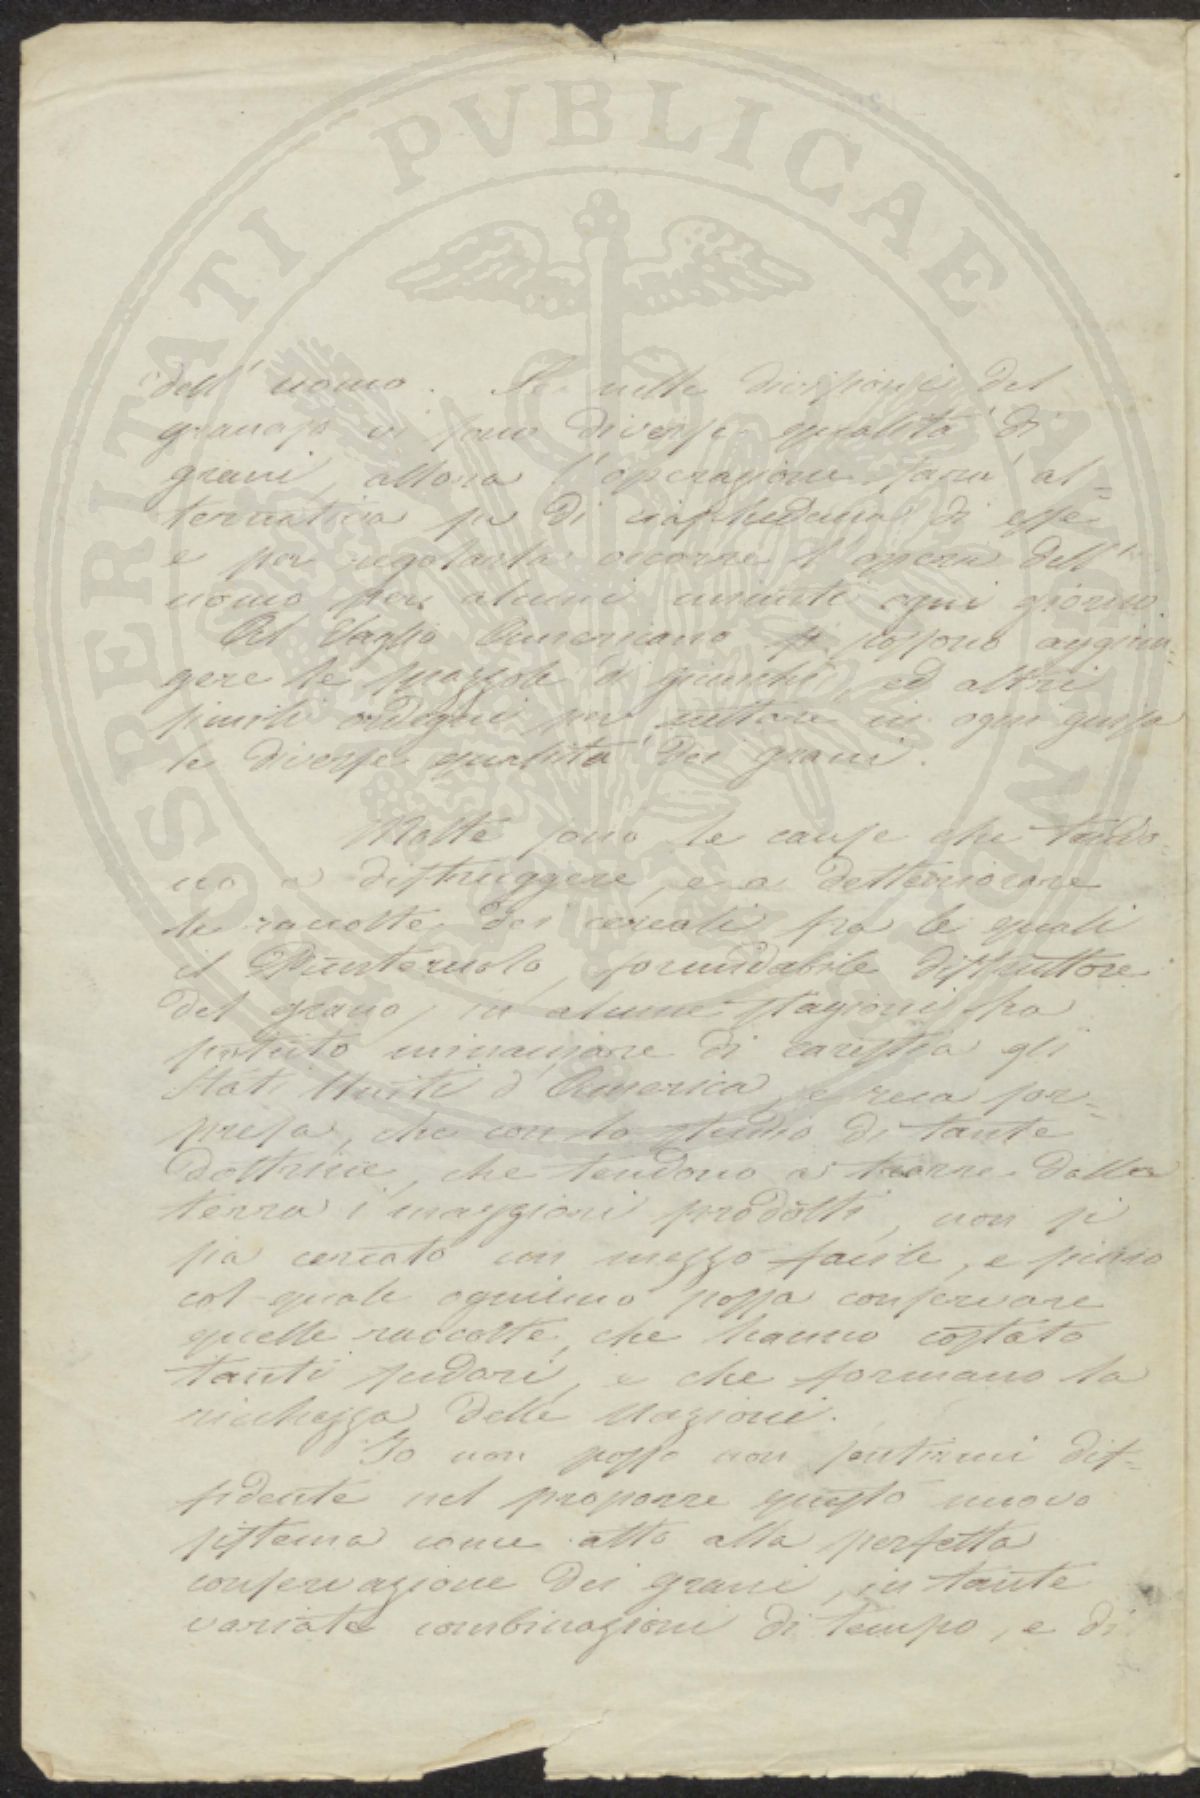 PROSPERITATI PVBLICAE AVGENDAE
dell'uomo. Se nelle divisioni del
granajo vi sono diverse qualità di
grani, allora l'operazione sarà al=
ternativa su di ciascheduna di esse
e per regolarla occorre l'opera dell'
uomo per alcuni minuti ogni giorno.
Al Vaglio Americano si possono aggiun=
gere le spazzole di giunchi, ed altri
simili ordegni per nettare in ogni guisa
le diverse qualità dei grani.
Molte sono le cause che tendo=
no a distruggere, e a detteriorare
le raccolte dei cereali fra le quali
il Punteruolo, formidabile distruttore
del grano, in alcune stagioni ha
potuto minacciare di carestia gli
Stati Uniti d'America, e reca sor=
presa, che con lo studio di tante
dottrine, che tendono a trarre dalla
terra i maggiori prodotti, non si
sia cercato un mezzo facile, e sicuro
col quale ognuno possa conservare
quelle raccolte, che hanno costato
tanti sudori, e che formano la
ricchezza delle Nazioni.
Io non posso non sentirmi dif=
fidente nel proporre questo nuovo
sistema come atto alla perfetta
conservazione dei grani, in tante
variate combinazioni di tempo, e di